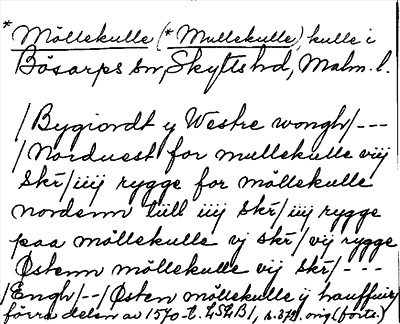 * Möllekulle (* Mullekulle), kulle i
Bösarps sn, Skytts hd, Malm. l.
/Bygiordt y Westre wongh/---
/Norduest for mullekulle vij
skr̄/iiij rygge for möllekulle
nordenn tüll iiij skr̄/iiij rygge
paa möllekulle vj skr̄/vij rygge
Østenn möllekulle vij skr̄/---
/Engh/--/Østen möllekulle ij hauffuer/
förra delen av 1570-t.